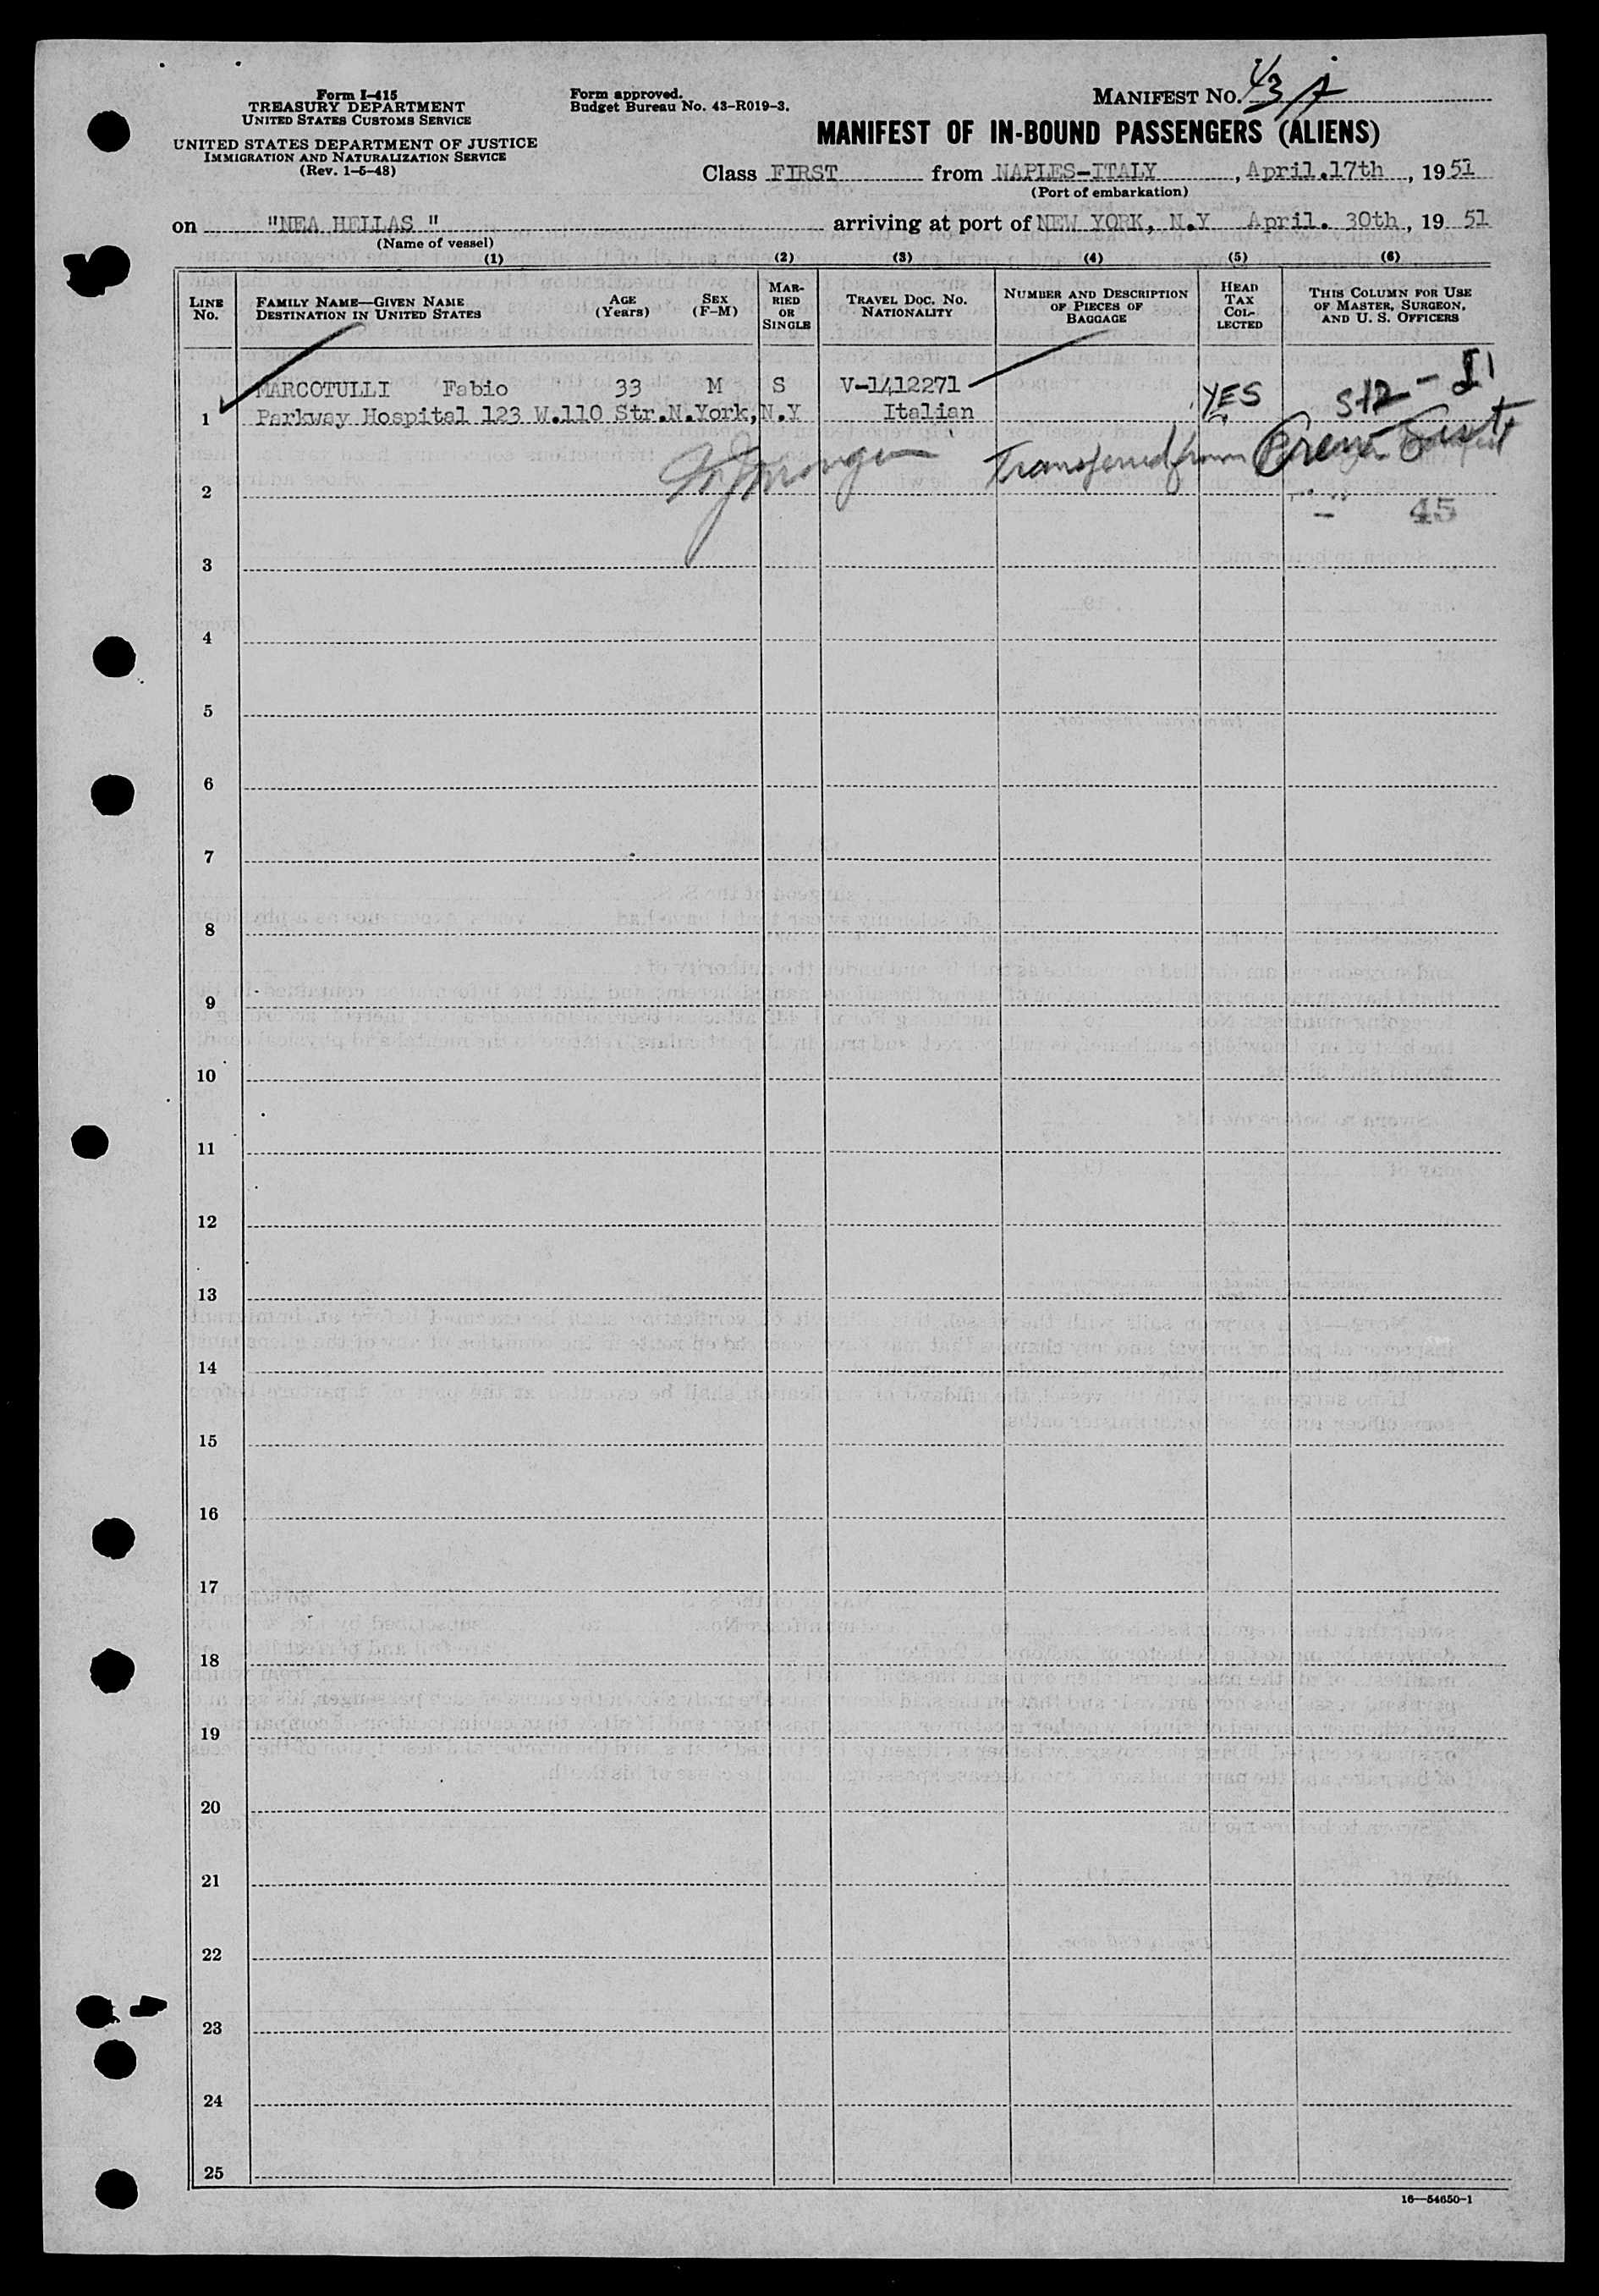 Form I-415
TREASURY DEPARTMENT
UNITED STATES CUSTOMS SERVICE
UNITED STATES DEPARTMENT OF JUSTICE
IMMIGRATION AND NATURALIZATION SERVICE
(Rev. 1-5-48)
Form approved.
Budget Bureau No. 43-R019-3.
MANIFEST NO.
MANIFEST OF IN-BOUND PASSENGERS (ALIENS)
Class FIRST from NAPLES-ITALY, April.17th, 1951
(Port of embarkation)
on "NEA HELLAS " arriving at port of NEW YORK, N.Y April. 30th, 19 51
(Name of vessel)
(1) (2) (3) (4) (5) (6)
LINE No. FAMILY NAME—GIVEN NAME DESTINATION IN UNITED STATES AGE (Years) SEX (F-M) MARRIED OR SINGLE TRAVEL DOC. NO. NATIONALITY NUMBER AND DESCRIPTION OF PIECES OF BAGGAGE HEAD TAX COLLECTED THIS COLUMN FOR USE OF MASTER, SURGEON, AND U. S. OFFICERS
MARCOTULLI Fabio 33 M S V-1412271 YES
1 Parkway Hospital 123 W.110 Str.N.York,N.Y Italian
Transferred from
2
45
3
4
5
6
7
8
9
10
11
12
13
14
15
16
17
18
19
20
21
22
23
24
25
16—54650-1